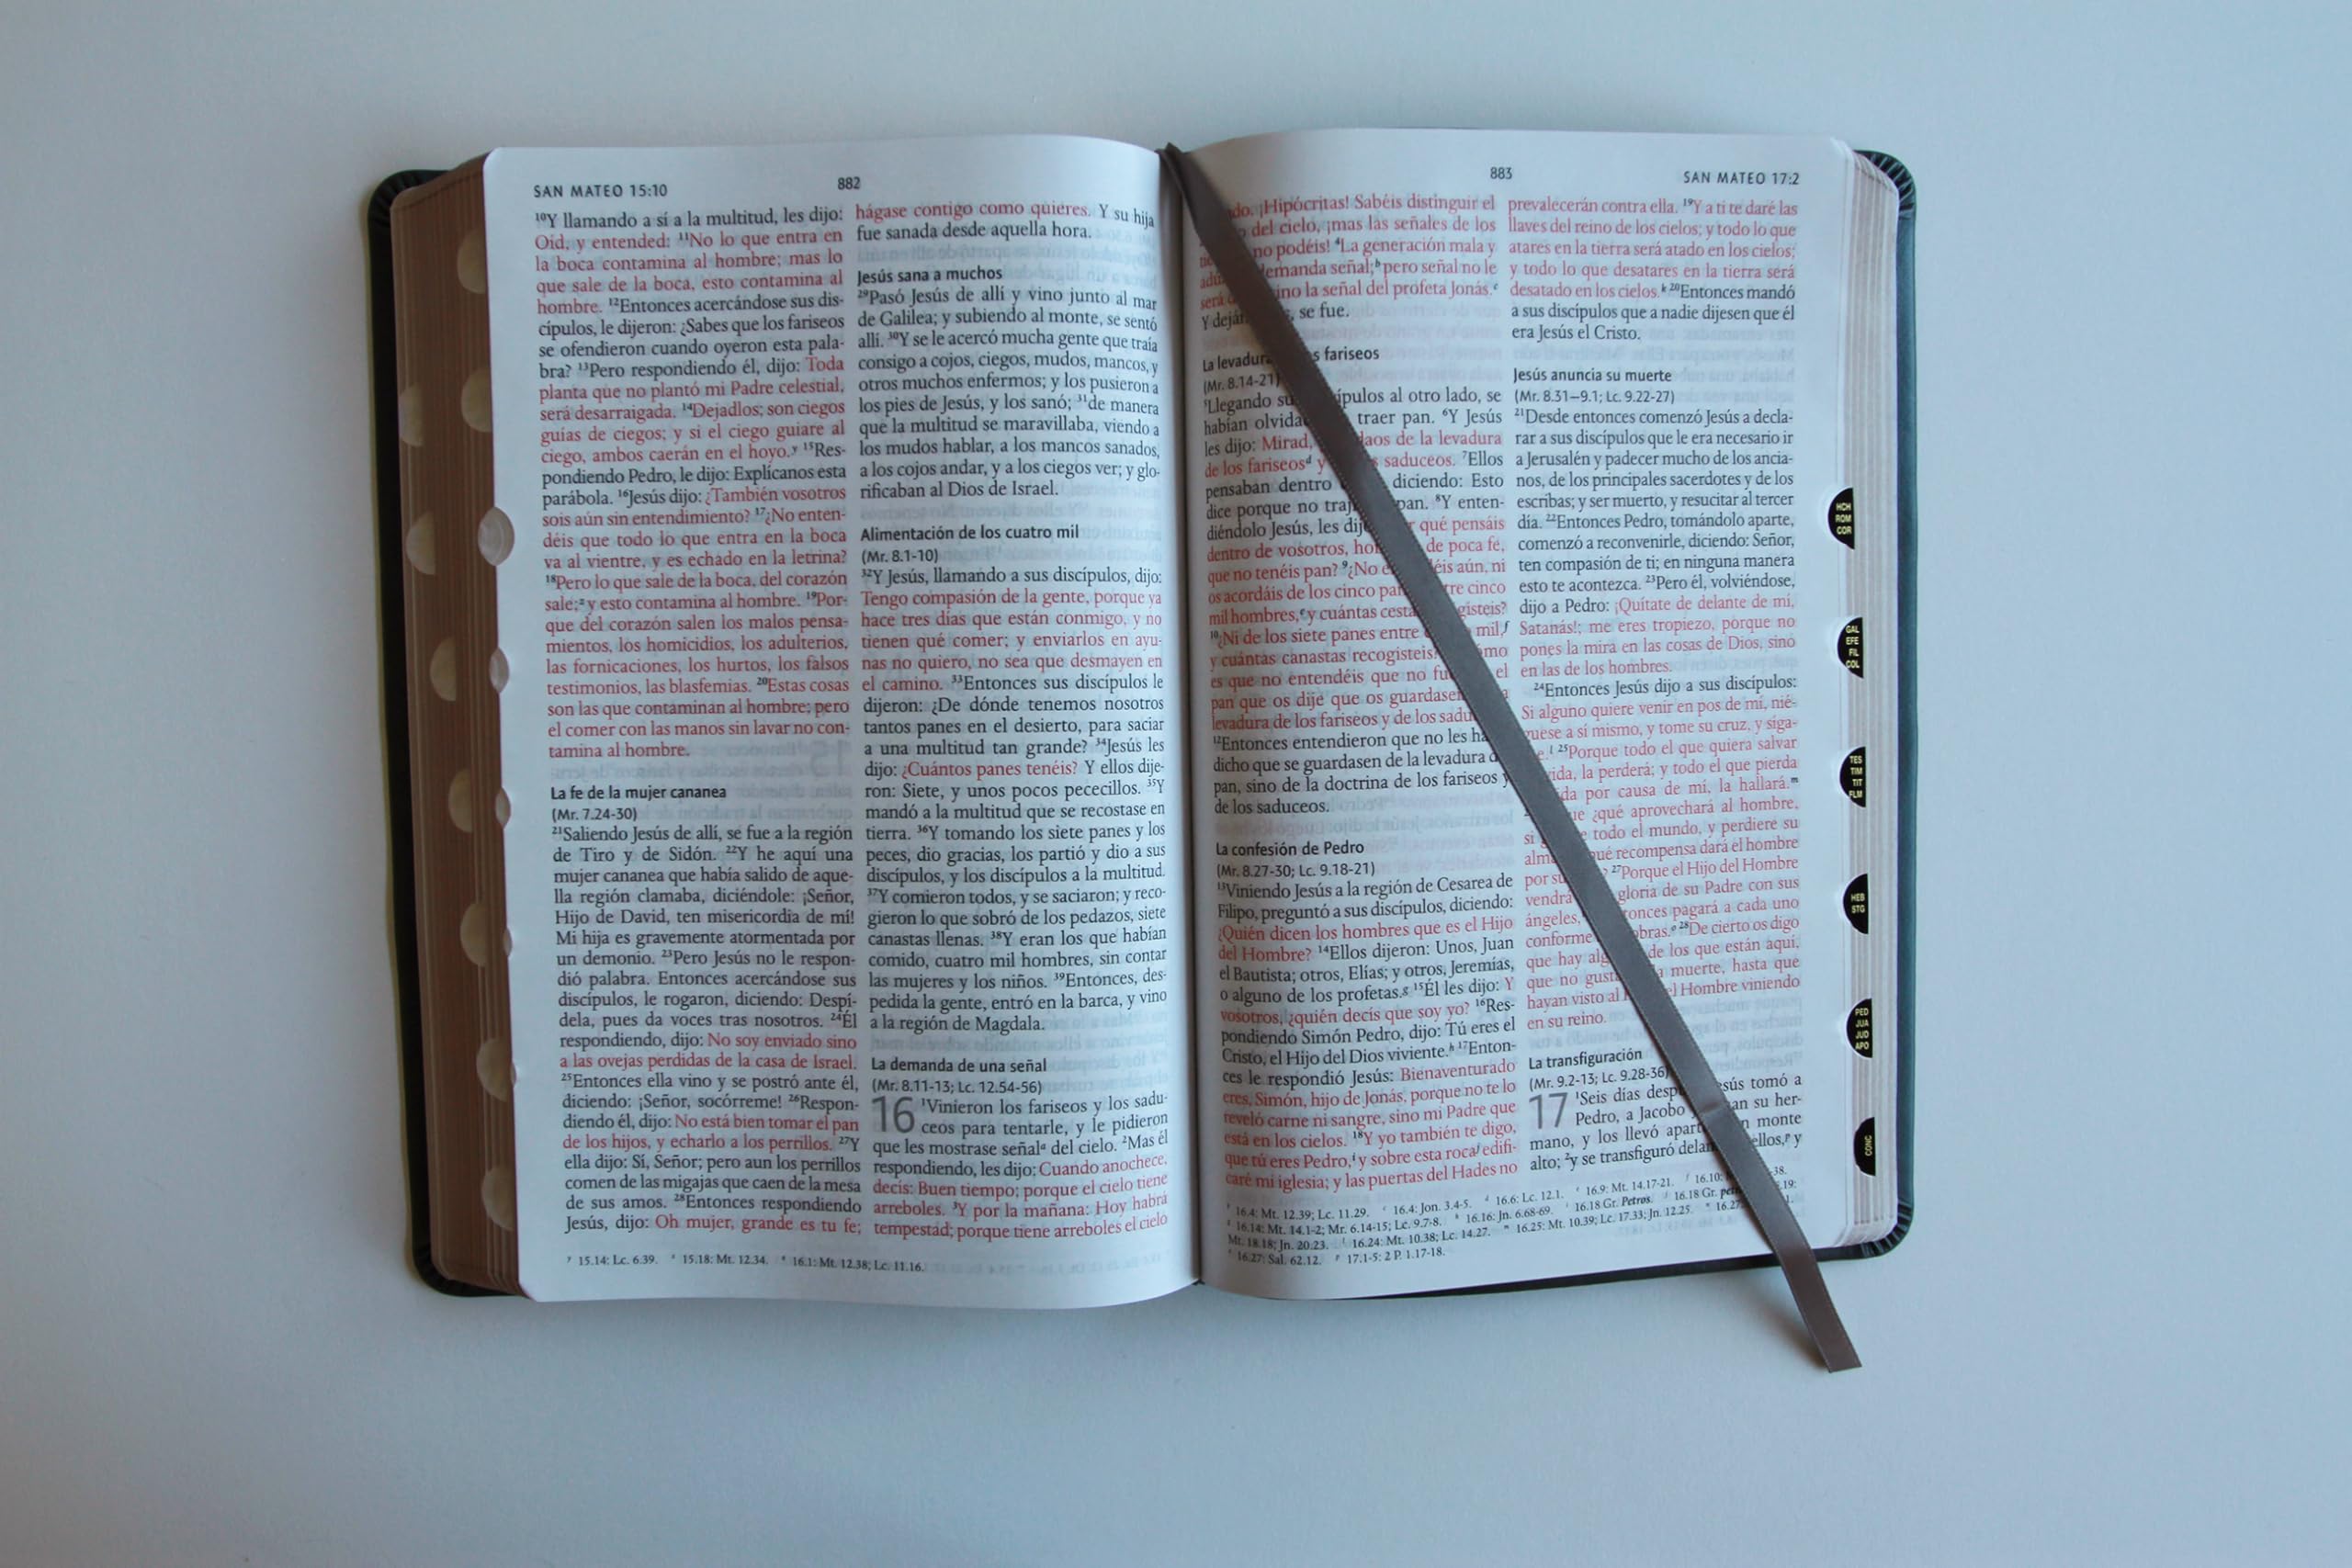 SAN MATEO 15:10
882
¹⁰Y llamando a sí a la multitud, les dijo:
Oíd, y entended: ¹¹No lo que entra en
la boca contamina al hombre; mas lo
que sale de la boca, esto contamina al
hombre. ¹²Entonces acercándose sus dis-
cípulos, le dijeron: ¿Sabes que los fariseos
se ofendieron cuando oyeron esta pala-
bra? ¹³Pero respondiendo él, dijo: Toda
planta que no plantó mi Padre celestial,
será desarraigada. ¹⁴Dejadlos; son ciegos
guías de ciegos; y si el ciego guiare al
ciego, ambos caerán en el hoyo.ʸ ¹⁵Res-
pondiendo Pedro, le dijo: Explícanos esta
parábola. ¹⁶Jesús dijo: ¿También vosotros
sois aún sin entendimiento? ¹⁷¿No enten-
déis que todo lo que entra en la boca
va al vientre, y es echado en la letrina?
¹⁸Pero lo que sale de la boca, del corazón
sale;ᶻ y esto contamina al hombre. ¹⁹Por-
que del corazón salen los malos pensa-
mientos, los homicidios, los adulterios,
las fornicaciones, los hurtos, los falsos
testimonios, las blasfemias. ²⁰Estas cosas
son las que contaminan al hombre; pero
el comer con las manos sin lavar no con-
tamina al hombre.
La fe de la mujer cananea
(Mr. 7.24-30)
²¹Saliendo Jesús de allí, se fue a la región
de Tiro y de Sidón. ²²Y he aquí una
mujer cananea que había salido de aque-
lla región clamaba, diciéndole: ¡Señor,
Hijo de David, ten misericordia de mí!
Mi hija es gravemente atormentada por
un demonio. ²³Pero Jesús no le respon-
dió palabra. Entonces acercándose sus
discípulos, le rogaron, diciendo: Despí-
dela, pues da voces tras nosotros. ²⁴Él
respondiendo, dijo: No soy enviado sino
a las ovejas perdidas de la casa de Israel.
²⁵Entonces ella vino y se postró ante él,
diciendo: ¡Señor, socórreme! ²⁶Respon-
diendo él, dijo: No está bien tomar el pan
de los hijos, y echarlo a los perrillos. ²⁷Y
ella dijo: Sí, Señor; pero aun los perrillos
comen de las migajas que caen de la mesa
de sus amos. ²⁸Entonces respondiendo
Jesús, dijo: Oh mujer, grande es tu fe;
hágase contigo como quieres. Y su hija
fue sanada desde aquella hora.
Jesús sana a muchos
²⁹Pasó Jesús de allí y vino junto al mar
de Galilea; y subiendo al monte, se sentó
allí. ³⁰Y se le acercó mucha gente que traía
consigo a cojos, ciegos, mudos, mancos, y
otros muchos enfermos; y los pusieron a
los pies de Jesús, y los sanó; ³¹de manera
que la multitud se maravillaba, viendo a
los mudos hablar, a los mancos sanados,
a los cojos andar, y a los ciegos ver; y glo-
rificaban al Dios de Israel.
Alimentación de los cuatro mil
(Mr. 8.1-10)
³²Y Jesús, llamando a sus discípulos, dijo:
Tengo compasión de la gente, porque ya
hace tres días que están conmigo, y no
tienen qué comer; y enviarlos en ayu-
nas no quiero, no sea que desmayen en
el camino. ³³Entonces sus discípulos le
dijeron: ¿De dónde tenemos nosotros
tantos panes en el desierto, para saciar
a una multitud tan grande? ³⁴Jesús les
dijo: ¿Cuántos panes tenéis? Y ellos dije-
ron: Siete, y unos pocos pececillos. ³⁵Y
mandó a la multitud que se recostase en
tierra. ³⁶Y tomando los siete panes y los
peces, dio gracias, los partió y dio a sus
discípulos, y los discípulos a la multitud.
³⁷Y comieron todos, y se saciaron; y reco-
gieron lo que sobró de los pedazos, siete
canastas llenas. ³⁸Y eran los que habían
comido, cuatro mil hombres, sin contar
las mujeres y los niños. ³⁹Entonces, des-
pedida la gente, entró en la barca, y vino
a la región de Magdala.
La demanda de una señal
(Mr. 8.11-13; Lc. 12.54-56)
16 ¹Vinieron los fariseos y los sadu-
ceos para tentarle, y le pidieron
que les mostrase señalᵃ del cielo. ²Mas él
respondiendo, les dijo: Cuando anochece,
decís: Buen tiempo; porque el cielo tiene
arreboles. ³Y por la mañana: Hoy habrá
tempestad; porque tiene arreboles el cielo
ʸ 15.14: Lc. 6.39. ᶻ 15.18: Mt. 12.34. ᵃ 16.1: Mt. 12.38; Lc. 11.16.
883
SAN MATEO 17:2
do. ¡Hipócritas! Sabéis distinguir el
del cielo, ¡mas las señales de los
no podéis! ⁴La generación mala y
demanda señal;ᵇ pero señal no le
será ino la señal del profeta Jonás.ᶜ
Y deján , se fue.
La levadura s fariseos
(Mr. 8.14-21)
Llegando su ípulos al otro lado, se
habían olvida traer pan. ⁶Y Jesús
les dijo: Mirad, daos de la levadura
de los fariseosᵈ y saduceos. ⁷Ellos
pensaban dentro diciendo: Esto
dice porque no traj pan. ⁸Y enten-
diéndolo Jesús, les dij r qué pensáis
dentro de vosotros, ho de poca fe,
que no tenéis pan? ⁹¿No e éis aún, ni
os acordáis de los cinco pa tre cinco
mil hombres,ᵉ y cuántas cesta gisteis?
¹⁰¿Ni de los siete panes entre mil,ᶠ
y cuántas canastas recogisteis? mo
es que no entendéis que no fu el
pan que os dije que os guardasen a
levadura de los fariseos y de los sadu
¹²Entonces entendieron que no les ha
dicho que se guardasen de la levadura d
pan, sino de la doctrina de los fariseos y
de los saduceos.
La confesión de Pedro
(Mr. 8.27-30; Lc. 9.18-21)
¹³Viniendo Jesús a la región de Cesarea de
Filipo, preguntó a sus discípulos, diciendo:
¿Quién dicen los hombres que es el Hijo
del Hombre? ¹⁴Ellos dijeron: Unos, Juan
el Bautista; otros, Elías; y otros, Jeremías,
o alguno de los profetas.ᵍ ¹⁵Él les dijo: Y
vosotros, ¿quién decís que soy yo? ¹⁶Res-
pondiendo Simón Pedro, dijo: Tú eres el
Cristo, el Hijo del Dios viviente.ʰ ¹⁷Enton-
ces le respondió Jesús: Bienaventurado
eres, Simón, hijo de Jonás, porque no te lo
reveló carne ni sangre, sino mi Padre que
está en los cielos. ¹⁸Y yo también te digo,
que tú eres Pedro,ⁱ y sobre esta rocaʲ edifi-
caré mi iglesia; y las puertas del Hades no
prevalecerán contra ella. ¹⁹Y a ti te daré las
llaves del reino de los cielos; y todo lo que
atares en la tierra será atado en los cielos;
y todo lo que desatares en la tierra será
desatado en los cielos.ᵏ ²⁰Entonces mandó
a sus discípulos que a nadie dijesen que él
era Jesús el Cristo.
Jesús anuncia su muerte
(Mr. 8.31—9.1; Lc. 9.22-27)
²¹Desde entonces comenzó Jesús a decla-
rar a sus discípulos que le era necesario ir
a Jerusalén y padecer mucho de los ancia-
nos, de los principales sacerdotes y de los
escribas; y ser muerto, y resucitar al tercer
día. ²²Entonces Pedro, tomándolo aparte,
comenzó a reconvenirle, diciendo: Señor,
ten compasión de ti; en ninguna manera
esto te acontezca. ²³Pero él, volviéndose,
dijo a Pedro: ¡Quítate de delante de mí,
Satanás!; me eres tropiezo, porque no
pones la mira en las cosas de Dios, sino
en las de los hombres.
²⁴Entonces Jesús dijo a sus discípulos:
Si alguno quiere venir en pos de mí, nié-
guese a sí mismo, y tome su cruz, y síga-
e.ˡ ²⁵Porque todo el que quiera salvar
ida, la perderá; y todo el que pierda
da por causa de mí, la hallará.ᵐ
ue ¿qué aprovechará al hombre,
si e todo el mundo, y perdiere su
alm ué recompensa dará el hombre
por su ? ²⁷Porque el Hijo del Hombre
vendrá gloria de su Padre con sus
ángeles, tonces pagará a cada uno
conforme obras.ᵒ ²⁸De cierto os digo
que hay alg de los que están aquí,
que no gust a muerte, hasta que
hayan visto al el Hombre viniendo
en su reino.
La transfiguración
(Mr. 9.2-13; Lc. 9.28-36)
17 ¹Seis días desp esús tomó a
Pedro, a Jacobo an su her-
mano, y los llevó apart n monte
alto; ²y se transfiguró delan ellos,ᵖ y
16.4: Mt. 12.39; Lc. 11.29. ᶜ 16.4: Jon. 3.4-5. ᵈ 16.6: Lc. 12.1. ᵉ 16.9: Mt. 14.17-21. ᶠ 16.10: 38.
ᵍ 16.14: Mt. 14.1-2; Mr. 6.14-15; Lc. 9.7-8. ʰ 16.16: Jn. 6.68-69. ⁱ 16.18 Gr. Petros. ʲ 16.18 Gr. pet .19:
Mt. 18.18; Jn. 20.23. ˡ 16.24: Mt. 10.38; Lc. 14.27. ᵐ 16.25: Mt. 10.39; Lc. 17.33; Jn. 12.25. ⁿ 16.27
ᵒ 16.27: Sal. 62.12. ᵖ 17.1-5: 2 P. 1.17-18.
HCH
ROM
COR
GAL
EFE
FIL
COL
TES
TIM
TIT
FLM
HEB
STG
PED
JUA
JUD
APO
CONC